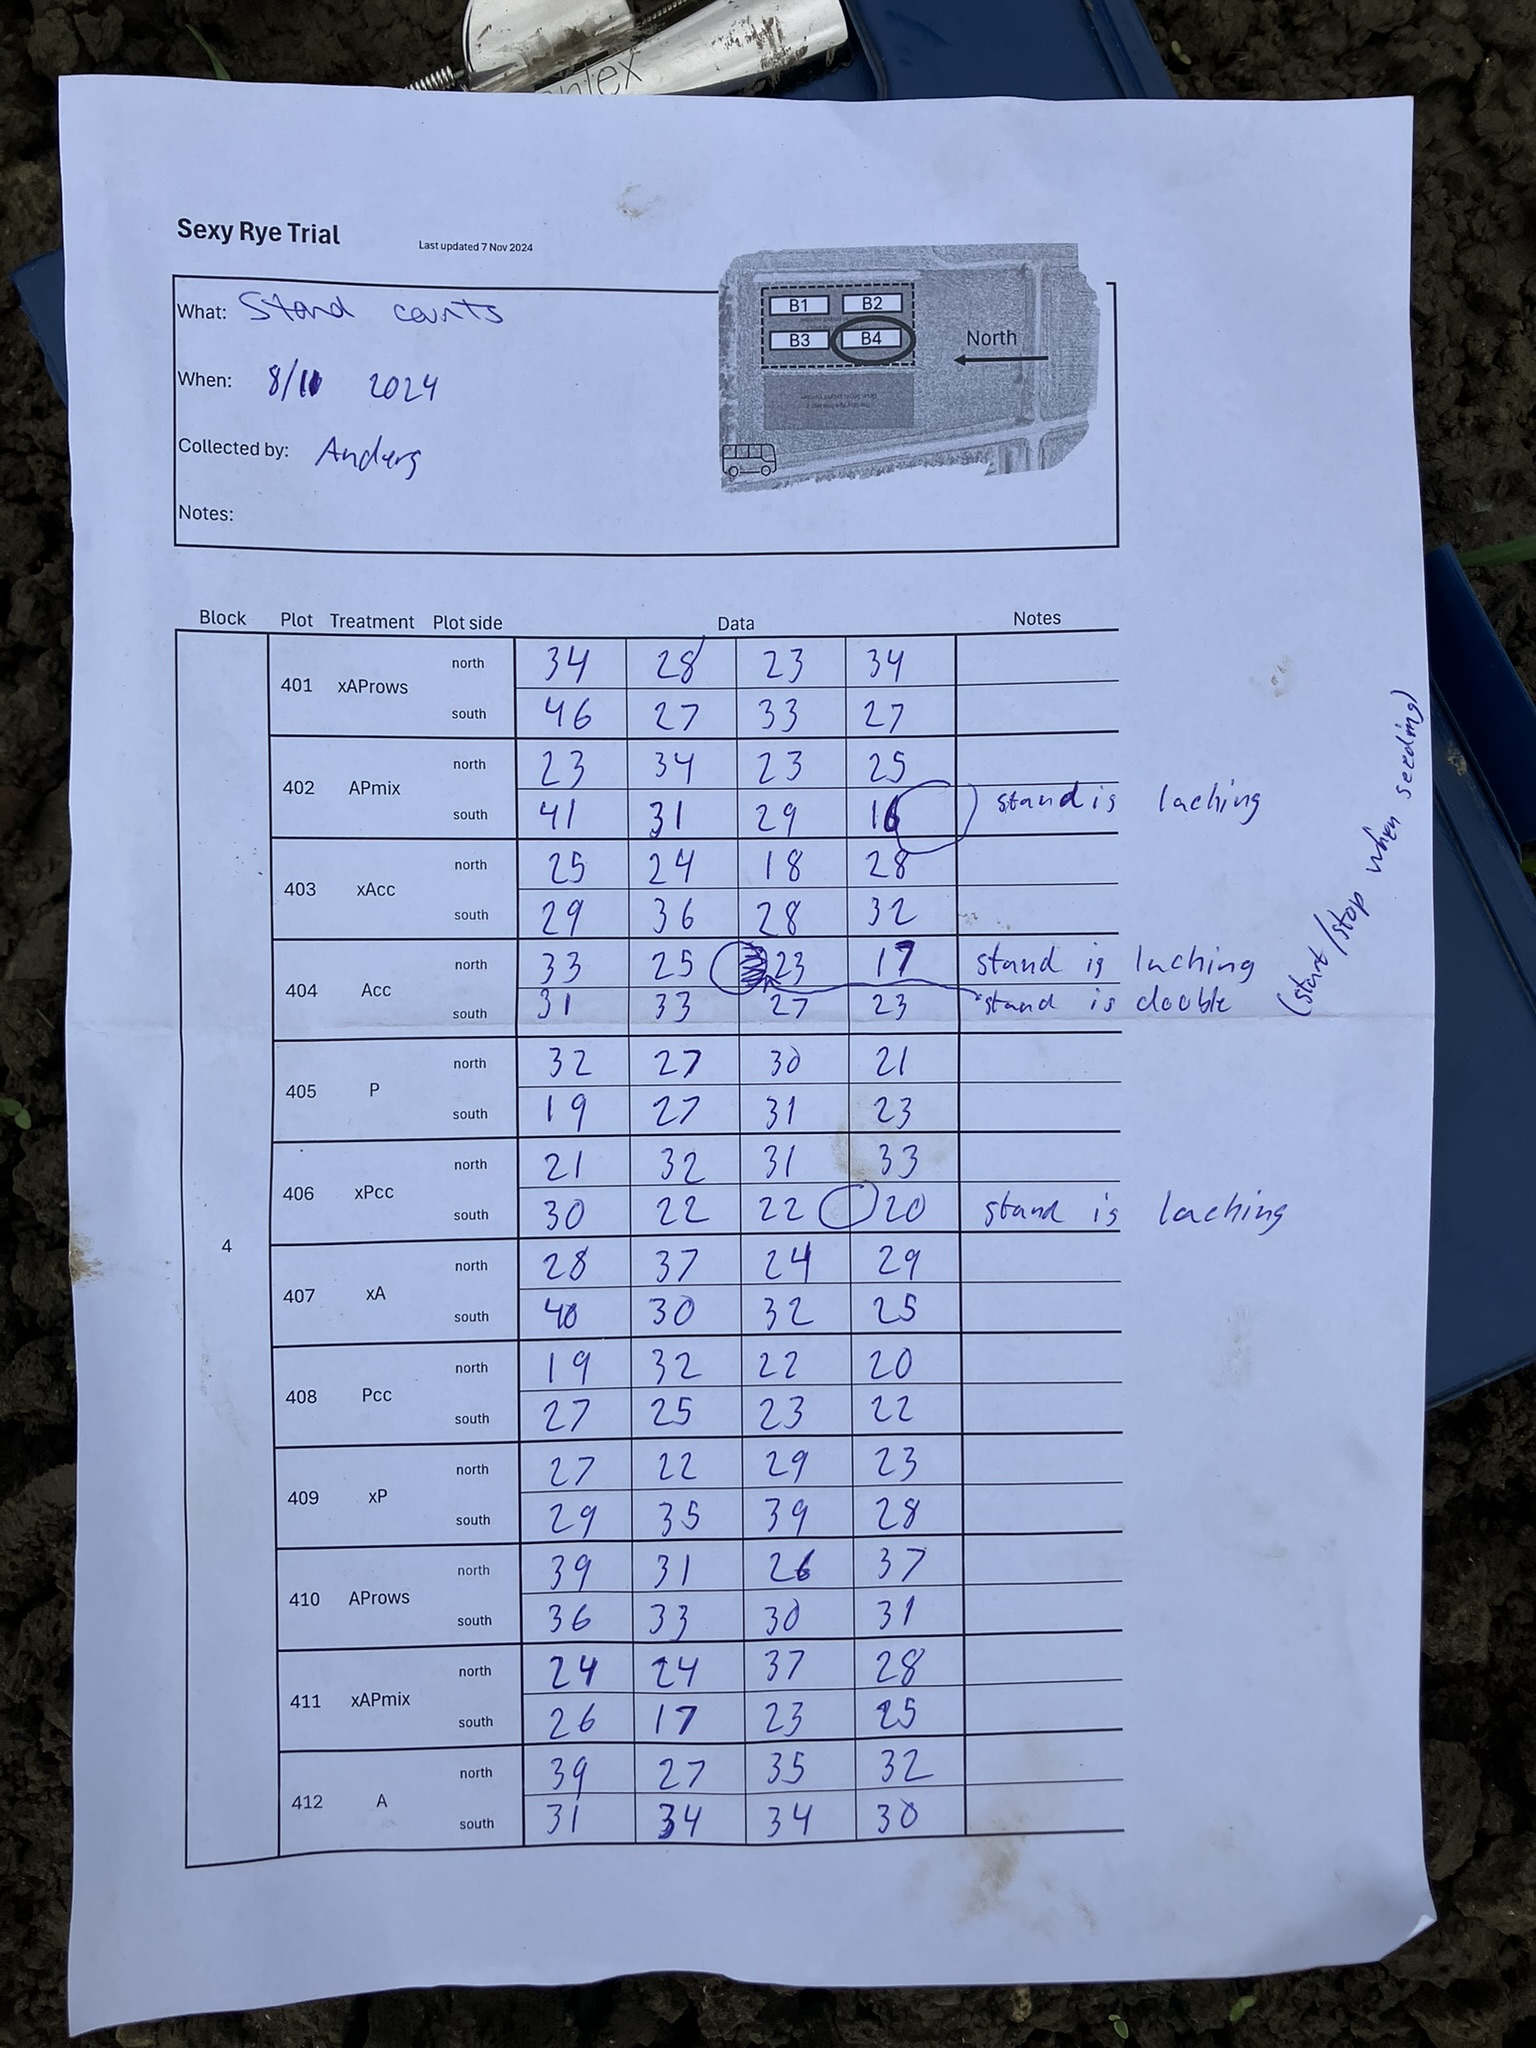 ntex
Sexy Rye Trial
Last updated 7 Nov 2024
What: Stand counts
B1 B2
B3 B4
North
When: 8/11 2024
Collected by: Anders
Notes:
Block Plot Treatment Plot side Data Notes
4
401 xAProws
north 34 28 23 34
south 46 27 33 27
402 APmix
north 23 34 23 25
south 41 31 29 16 stand is laching
403 xAcc
north 25 24 18 28
south 29 36 28 32
404 Acc
north 33 25 23 17 stand is laching
south 31 33 27 23 stand is double
(start/stop when seeding)
405 P
north 32 27 30 21
south 19 27 31 23
406 xPcc
north 21 32 31 33
south 30 22 22 20 stand is laching
407 xA
north 28 37 24 29
south 40 30 32 25
408 Pcc
north 19 32 22 20
south 27 25 23 22
409 xP
north 27 22 29 23
south 29 35 39 28
410 AProws
north 39 31 26 37
south 36 33 30 31
411 xAPmix
north 24 24 37 28
south 26 17 23 25
412 A
north 39 27 35 32
south 31 34 34 30